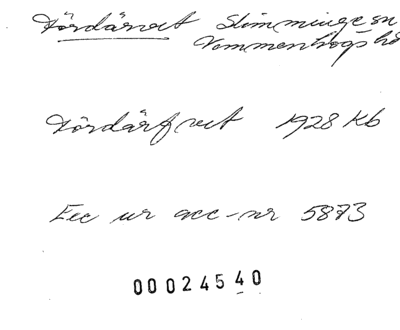 Fördärvet Slimminge sn
Vemmenhögs hd
Fördärfvet 1928 Kb
Exc ur acc-nr 5873
00024540